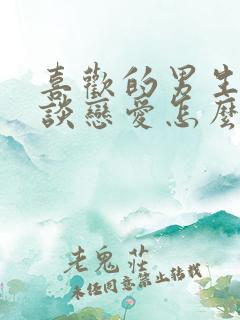 喜歡的男生
談戀愛怎麼
老鬼莊
未任同意禁止轉載